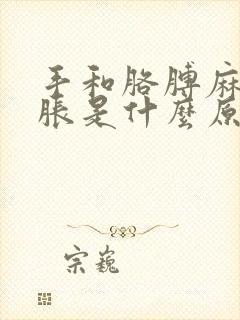 手和胳膊麻
胀是什麼原
宗巍